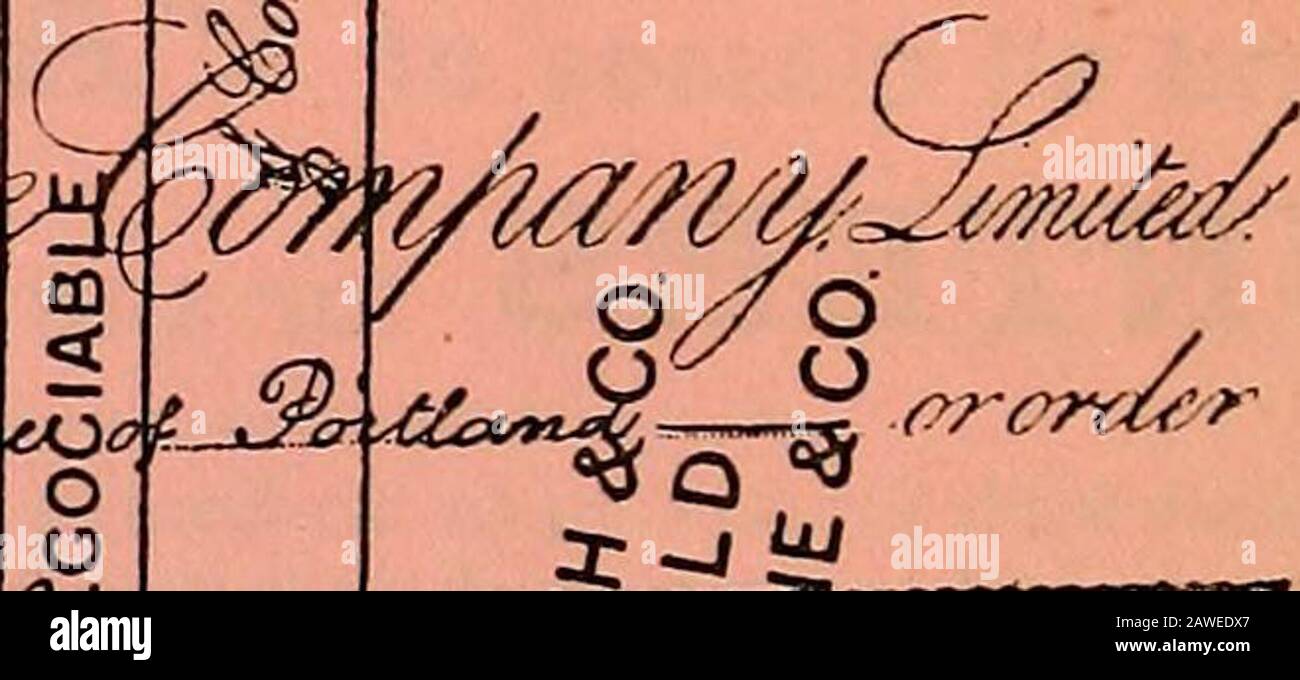 Company, Limited.
of Portland or order
GOCIABLE
H & CO.
LD
NE & CO.
alamy
Image ID: 2AWEDX7
www.alamy.com